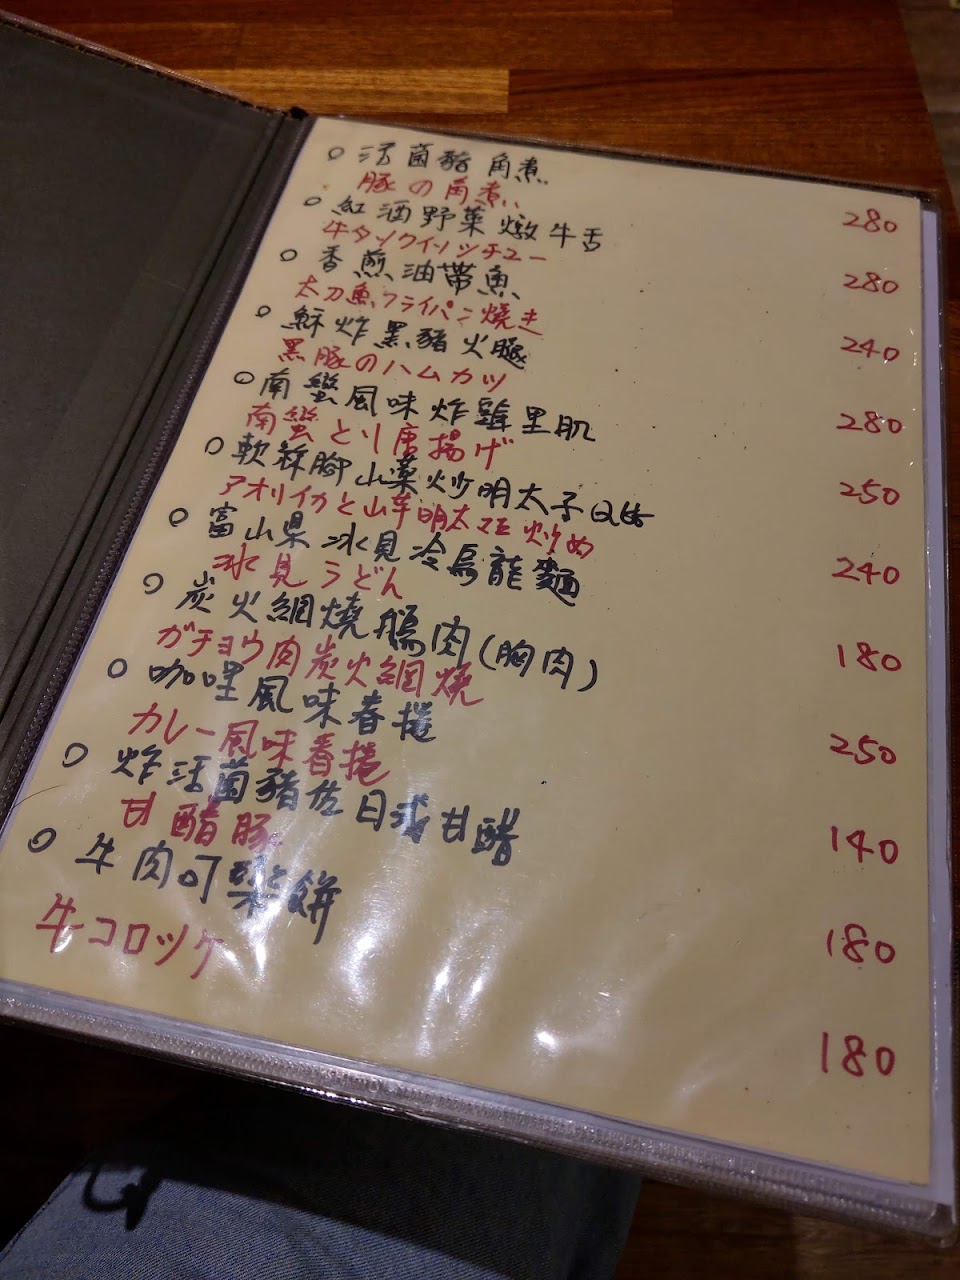 ○ 活菌豬角煮
豚の角煮 280
○ 紅酒野菜燉牛舌
牛タンワインシチュー 280
○ 香煎油帶魚
太刀魚フライパン焼き 240
○ 酥炸黑豬火腿
黒豚のハムカツ 280
○ 南蠻風味炸雞里肌
南蛮とり唐揚げ 250
○ 軟絲腳山藥炒明太子
アオリイカと山芋明太子炒め 240
○ 富山県氷見冷烏龍麵
氷見うどん 180
○ 炭火網燒鵝肉(胸肉)
ガチョウ肉炭火網焼 250
○ 咖哩風味春捲
カレー風味春捲 140
○ 炸活菌豬佐日式甘醋
甘醋豚 180
○ 牛肉可樂餅
牛コロッケ 180